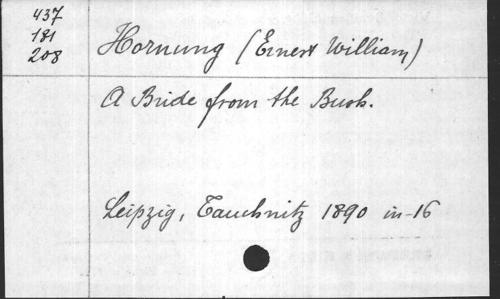 437
181
208
Hornung (Ernest William)
A Bride from the Bush.
Leipzig, Tauchnitz 1890 in-16